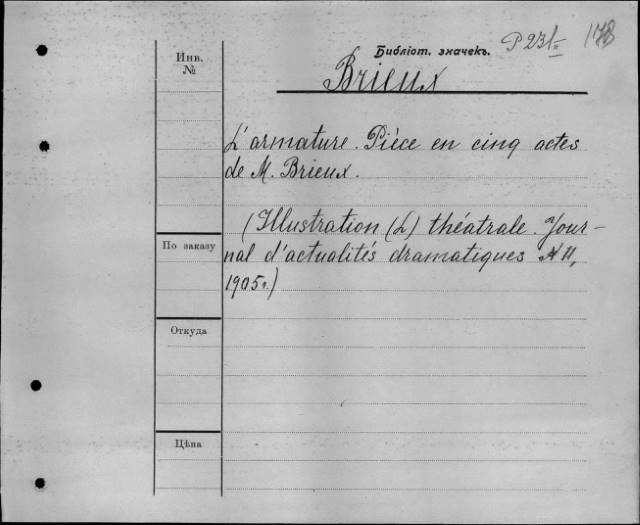 Библіот. значекъ.
Инв. №
Brieux
L'armature. Pièce en cinq actes
de M. Brieux.
(Illustration (L) théatrale. Jour-
nal d'actualités dramatiques № 11,
1905г.)
По заказу
Откуда
Цѣна